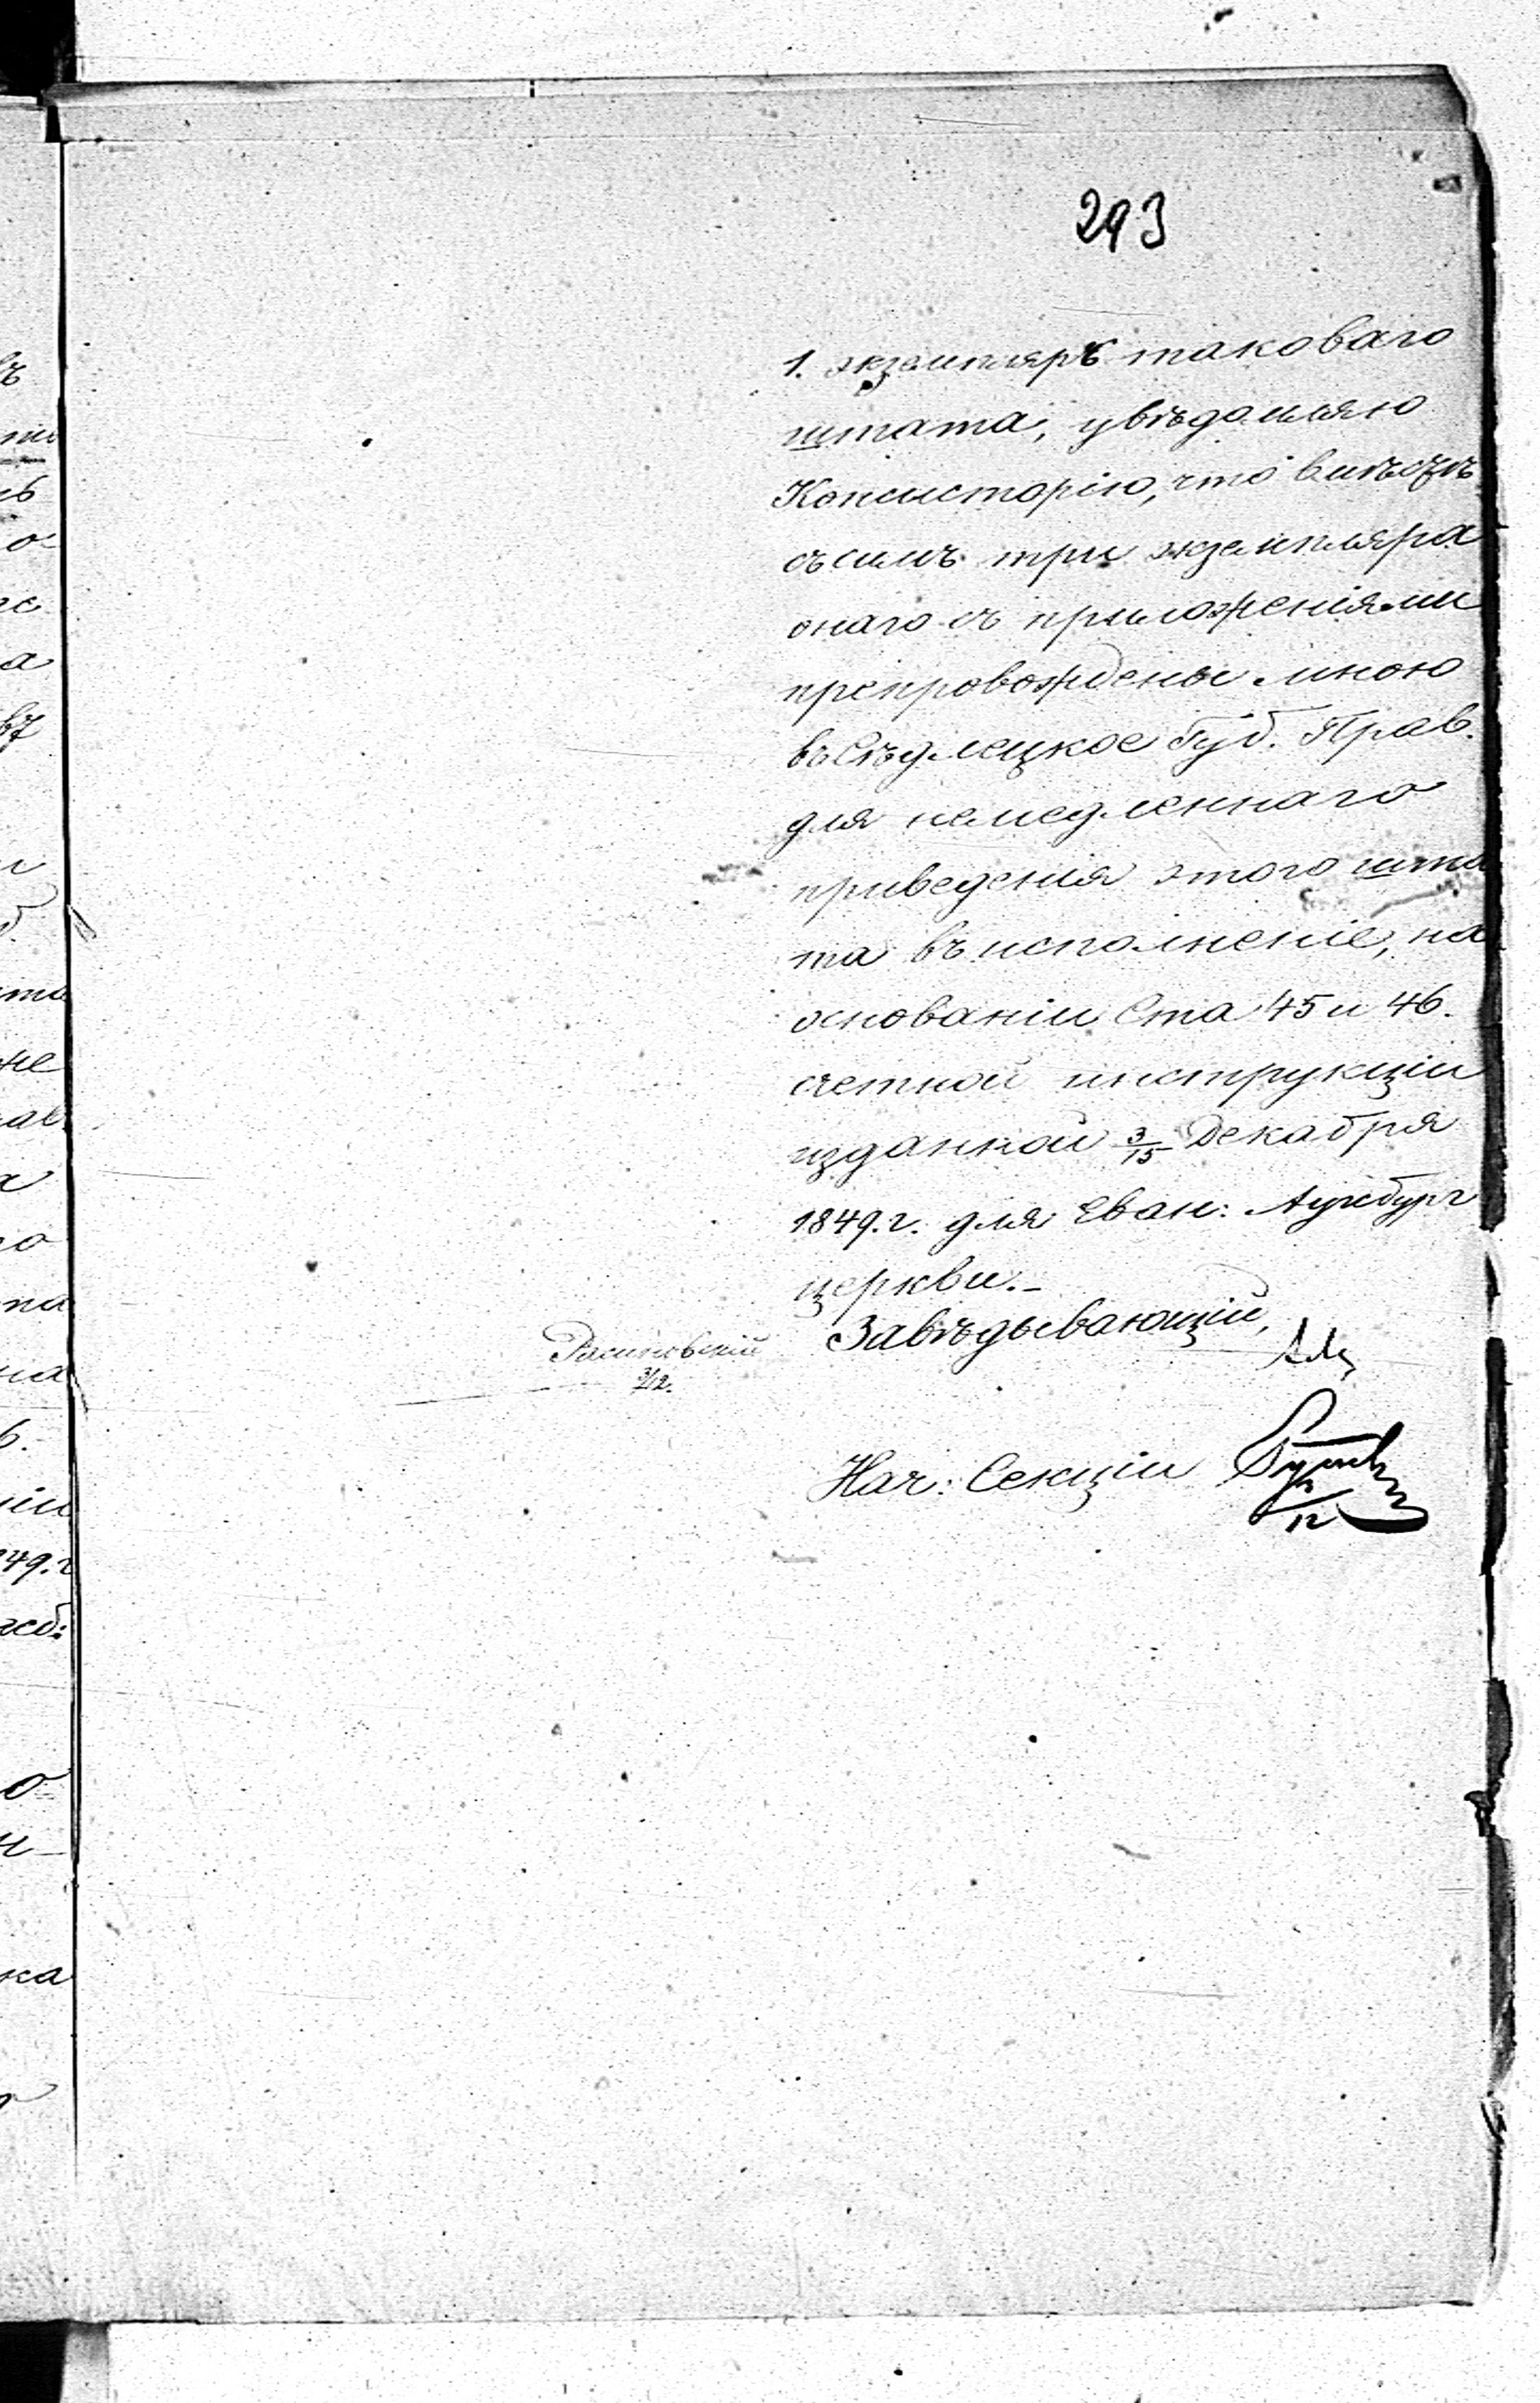 293
1. экземпляръ таковаго
штата, увѣдомляю
Консисторію, что вмѣстѣ
съ симъ три экземпляра
онаго съ приложеніями
препровождены мною
въ Сѣдлецкое Губ. Прав.
для немедленнаго
приведенія этого шта
та въ исполненіе, на
основаніи Ста 45 и 46.
счетной инструкціи
изданной 3/15 Декабря
1849. г. для Еван: Аугсбург
церкви.-
Завѣдывающій,
3/12.
Нач: Секціи